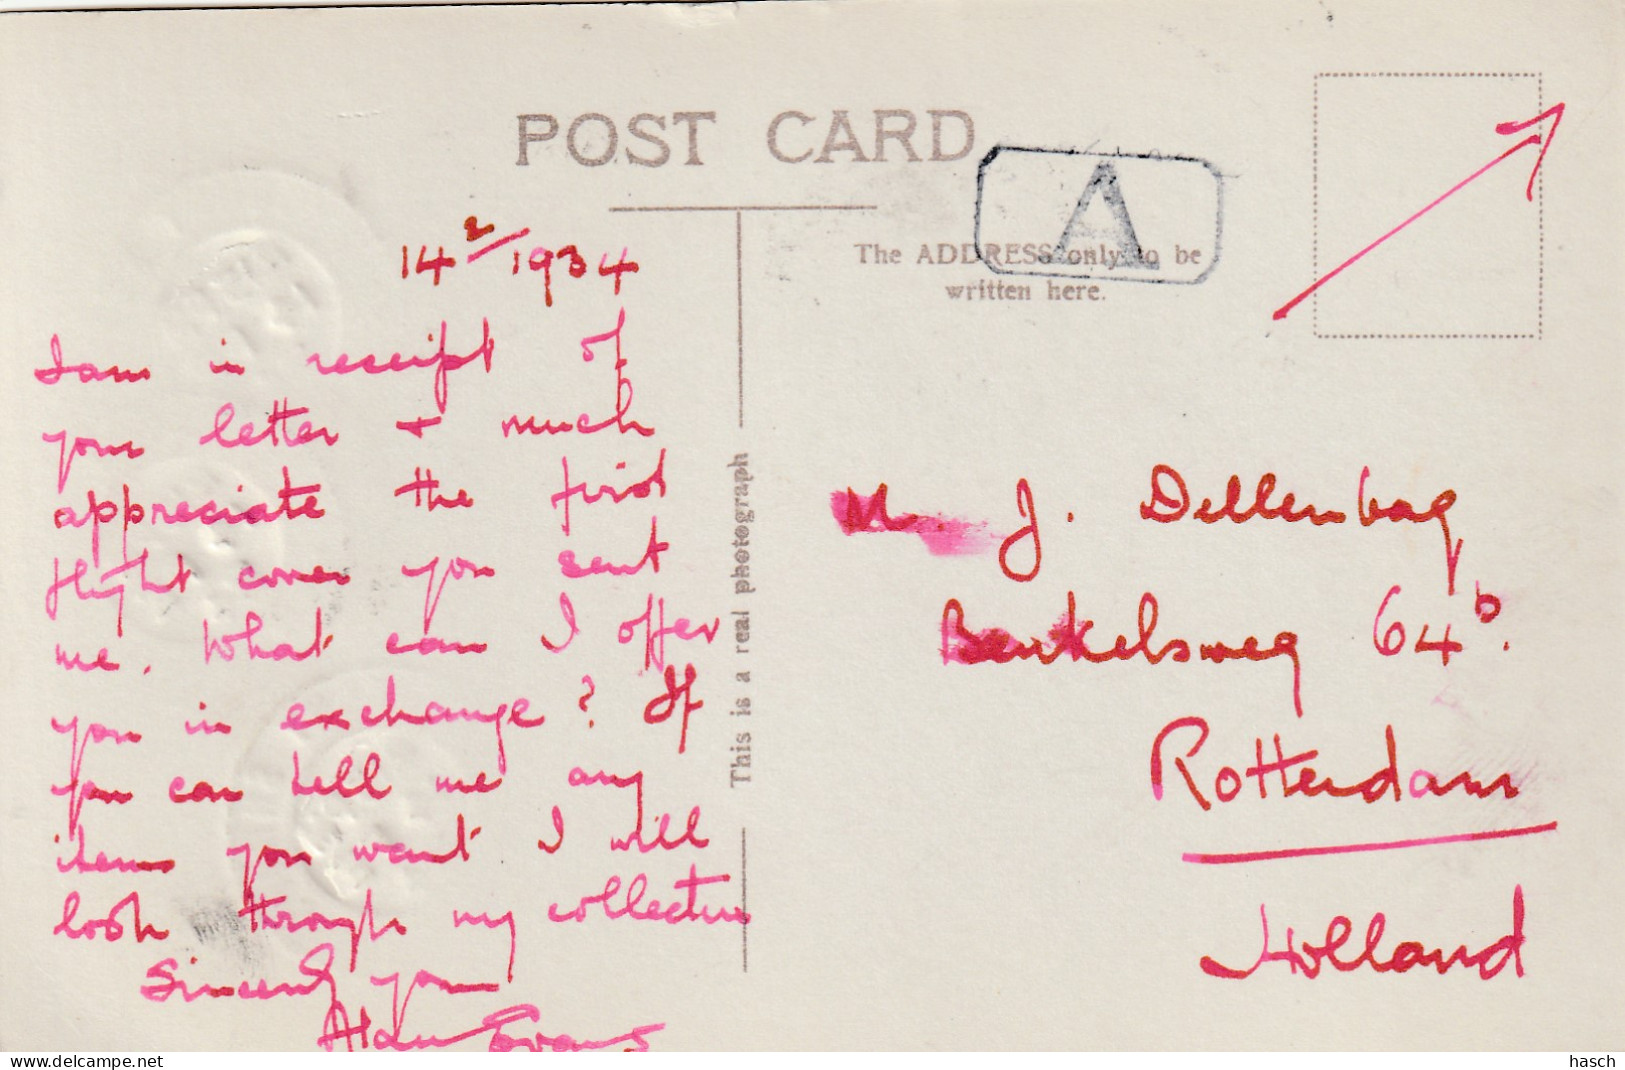 POST CARD
A
The ADDRESS only to be
written here.
14 2/1934
I am in receipt of
your letter + much
appreciate the first
flight cover you sent
me. What can I offer
you in exchange? If
you can tell me any
items you want I will
look through my collection
Sincerely yours
Alan Evans
This is a real photograph
M. J. Dellenbag
Berkelsweg 64b.
Rotterdam
Holland
www.delcampe.net
hasch